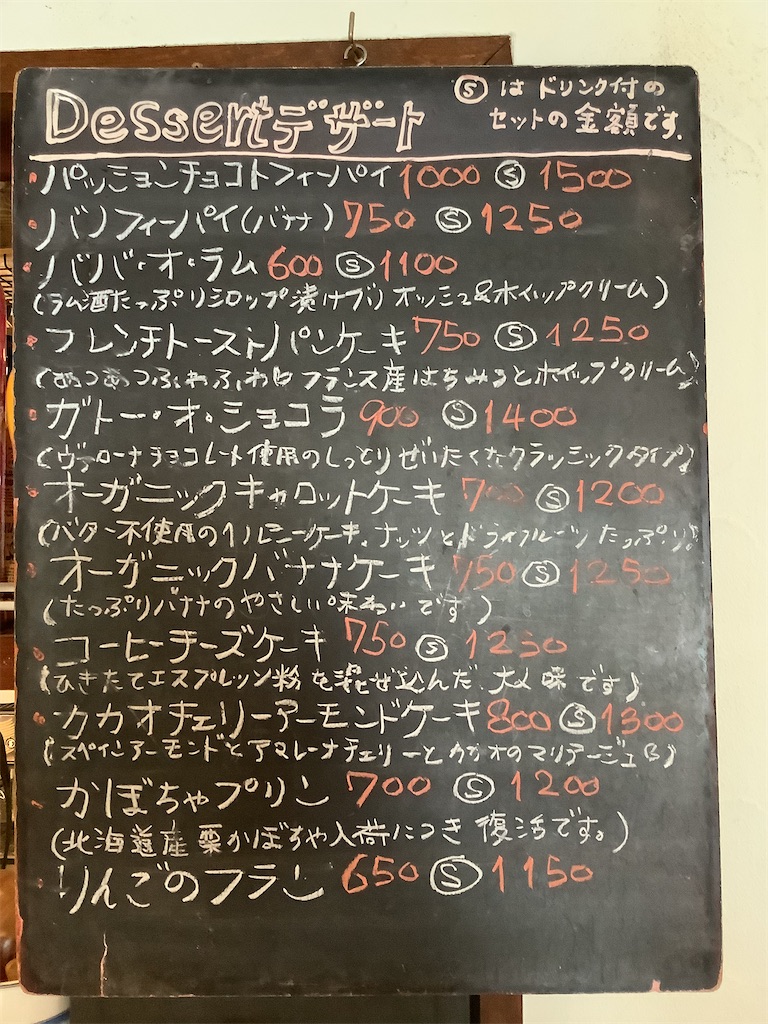 Dessertデザート
Ⓢ は ドリンク付の
セットの 金額です.
パッションチョコトフィーパイ 1000 Ⓢ 1500
バノフィーパイ(バナナ) 750 Ⓢ 1250
ババ・オ・ラム 600 Ⓢ 1100
(ラム酒たっぷりシロップ漬けブリオッシュ&ホイップクリーム)
フレンチトーストパンケーキ 750 Ⓢ 1250
(あつあつふわふわ フランス産はちみつとホイップクリーム)
ガトー・オ・ショコラ 900 Ⓢ 1400
(ヴァローナチョコレート使用のしっとりぜいたくなクラッシックタイプ)
オーガニックキャロットケーキ 700 Ⓢ 1200
(バター不使用のヘルシーケーキ、ナッツとドライフルーツたっぷり)
オーガニックバナナケーキ 750 Ⓢ 1250
(たっぷりバナナのやさしい味わいです)
コーヒーチーズケーキ 750 Ⓢ 1250
(ひきたてエスプレッソ粉を混ぜ込んだ、大人味です)
カカオチェリーアーモンドケーキ 800 Ⓢ 1300
(スペインアーモンドとアマレーナチェリーとカカオのマリアージュ)
かぼちゃプリン 700 Ⓢ 1200
(北海道産栗かぼちゃ入荷につき 復活です。)
りんごのフラン 650 Ⓢ 1150